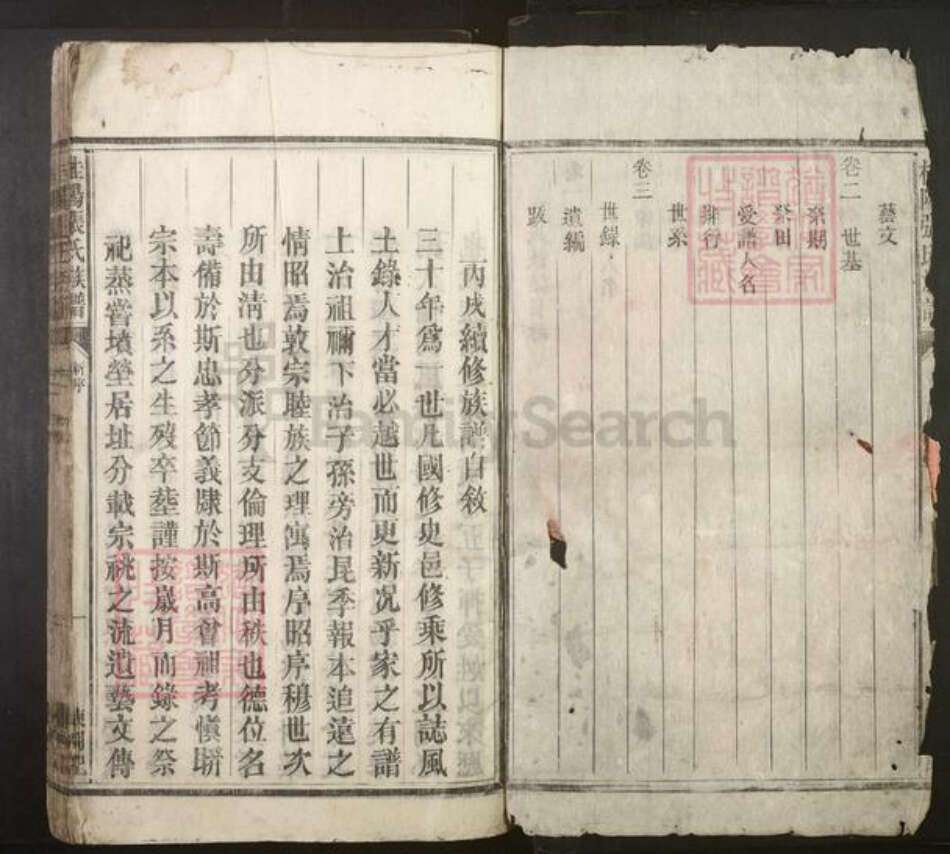 藝文
卷二 世基
祭期
祭田
愛譜人名
排行
世系
卷三
世錄
遺編
跋
丙戌續修族譜自敘
三十年爲一世凡國修史邑修乘所以誌風
土錄人才當必越世而更新况乎家之有譜
上治祖禰下治子孫旁治昆季報本追遠之
情昭焉敦宗睦族之理寓焉序昭序穆世次
所由清也分派分支倫理所由秩也德位名
壽備於斯忠孝節義隸於斯高曾祖考愼聯
宗本以系之生殁卒塟謹按嵗月而錄之祭
祀蒸嘗墳塋居址分載宗祧之流遺藝文傳
桂陽張氏族譜
FamilySearch